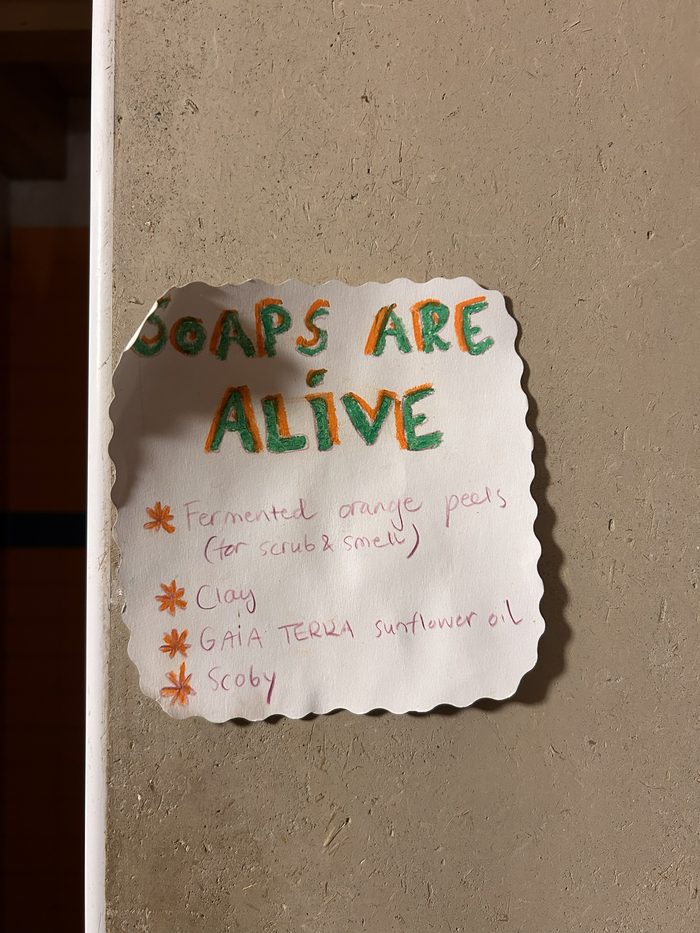 SOAPS ARE
ALiVE
Fermented orange peels
(for scrub & smell)
Clay
GAiA TERRA sunflower oil.
Scoby